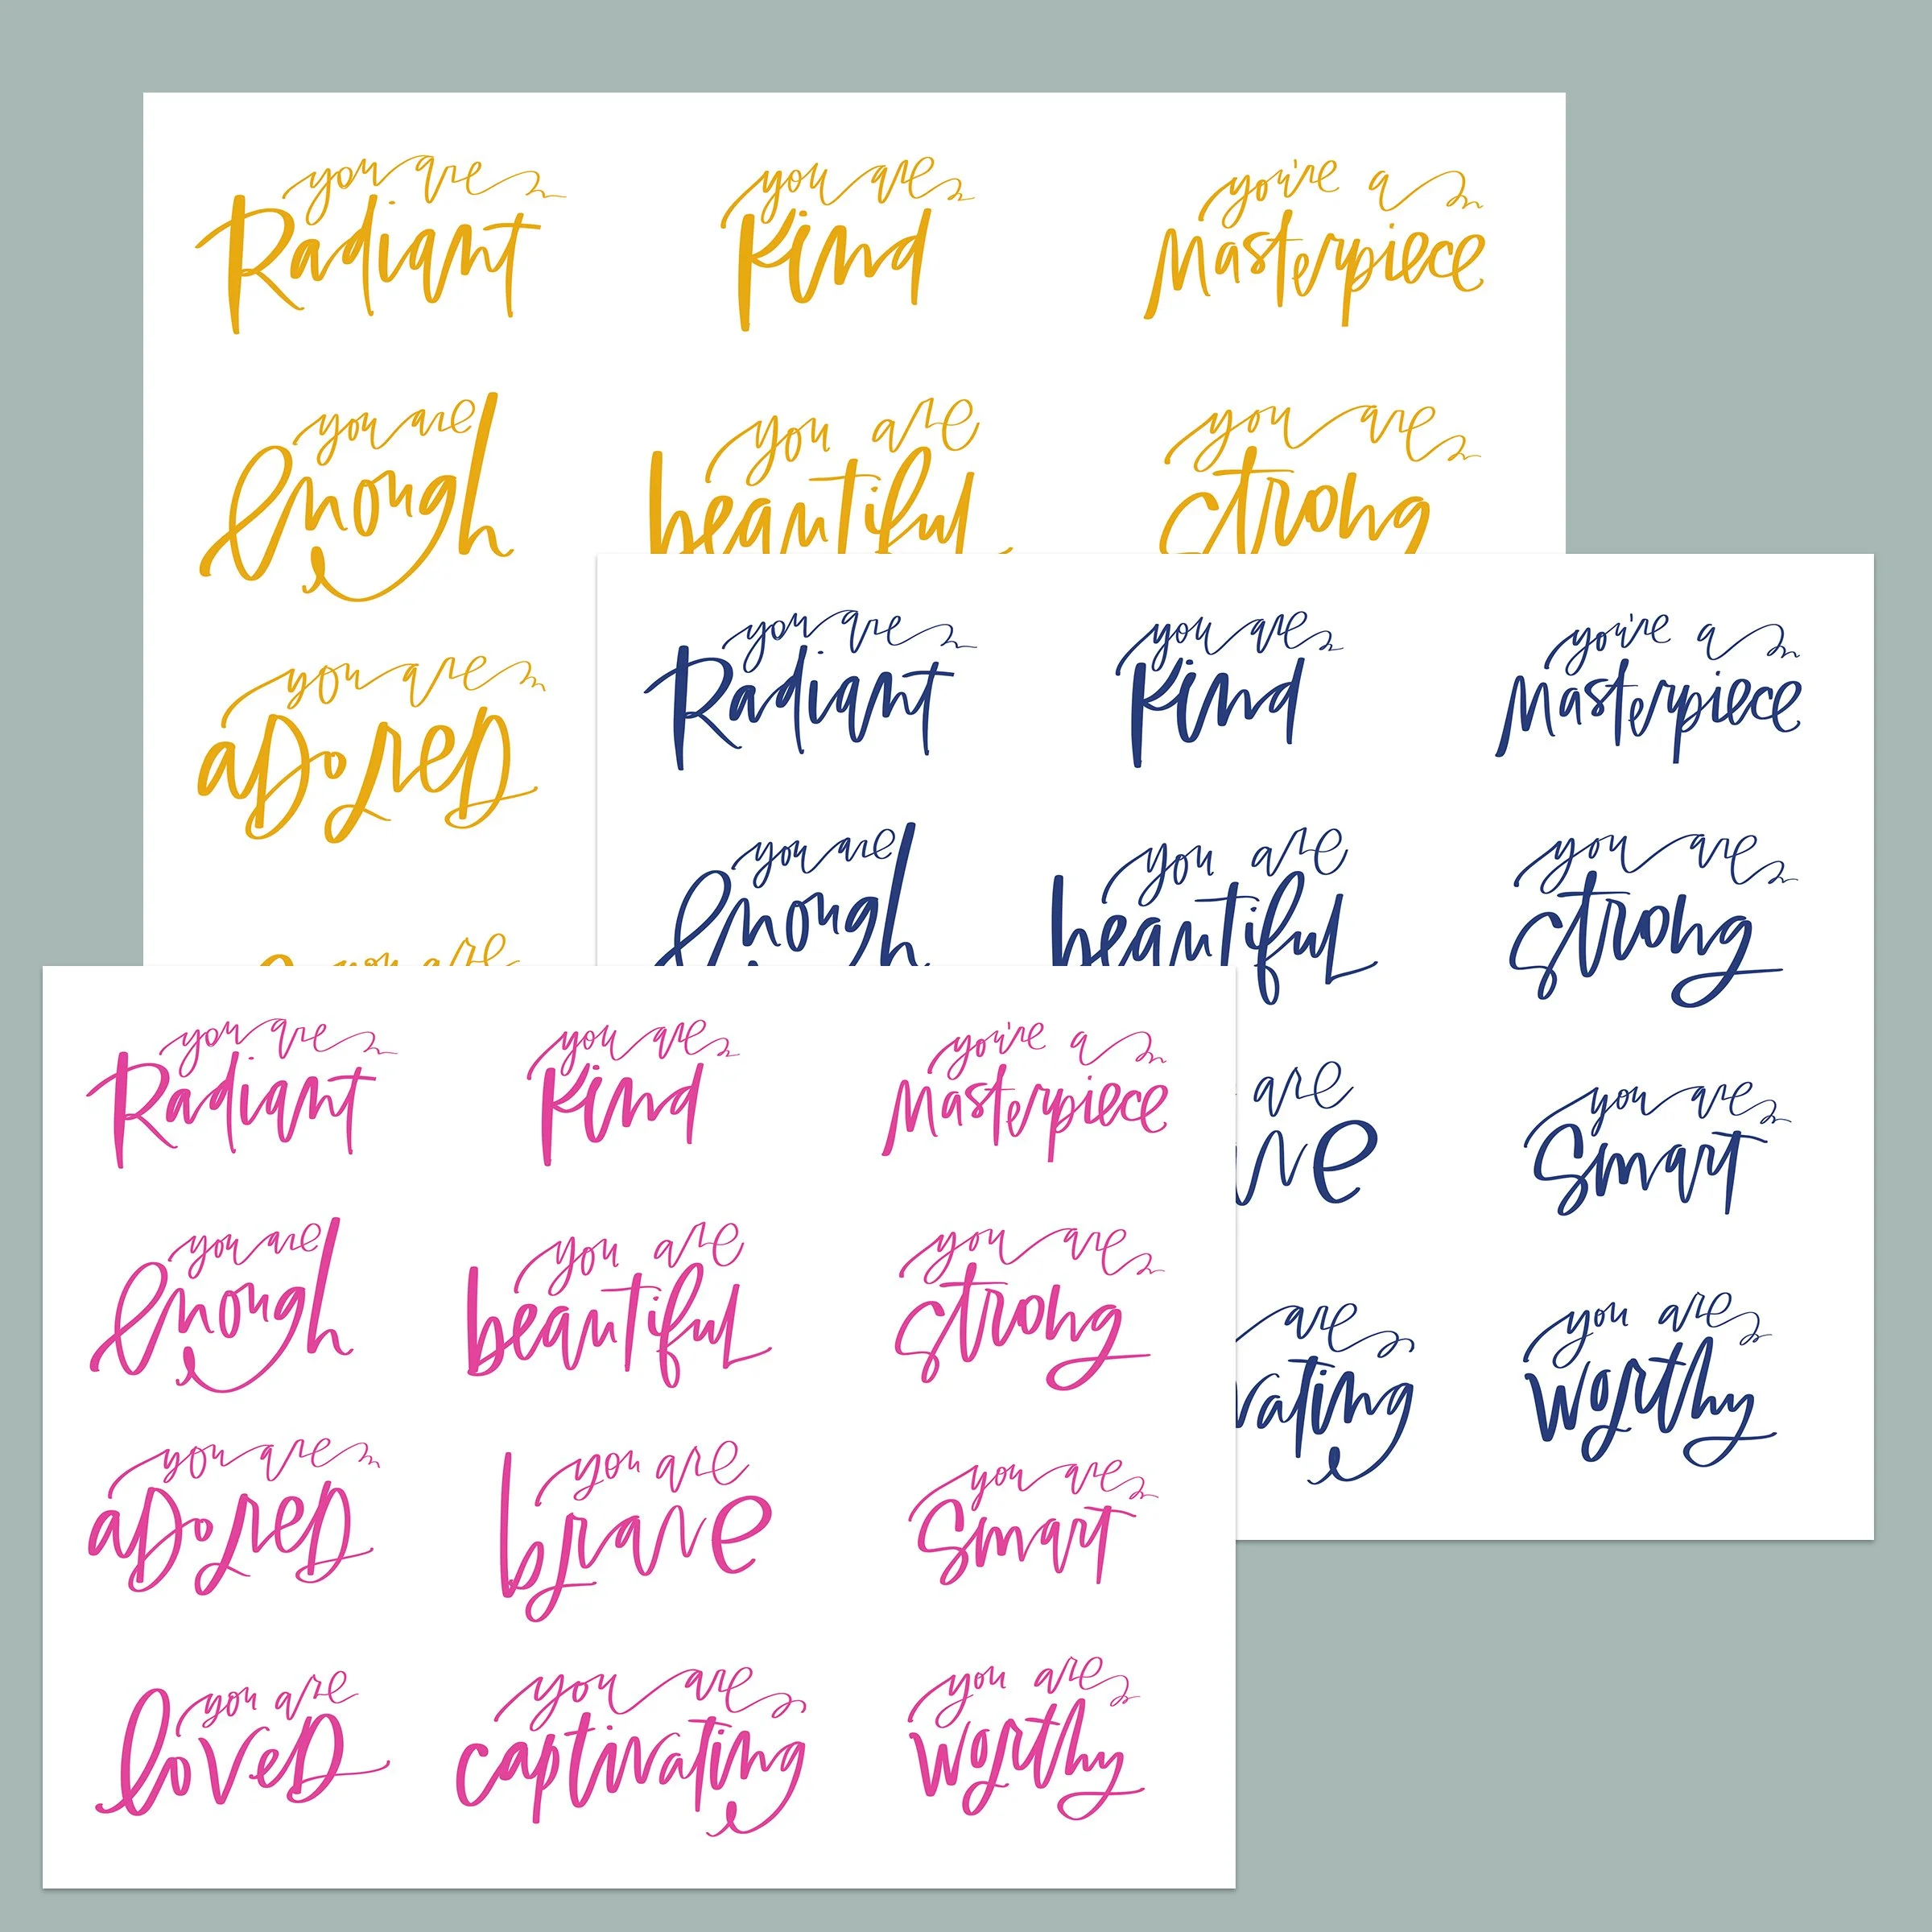 you are
Radiant
you are
Kind
you're a
Masterpiece
you are
Enough
you are
beautiful
you are
strong
you are
aDoreD
you are
you are
Radiant
you are
Kind
you're a
Masterpiece
you are
Enough
you are
beautiful
you are
strong
are
ve
you are
Smart
are
vating
you are
worthy
you are
Radiant
you are
Kind
you're a
Masterpiece
you are
Enough
you are
beautiful
you are
strong
you are
aDoreD
you are
brave
you are
Smart
you are
loveD
you are
captivating
you are
worthy